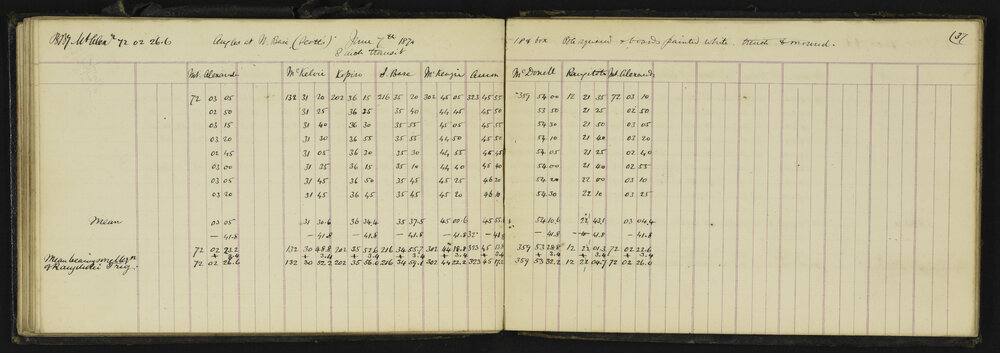 Mt Alexr 72 02 26.6 Angles at N. Base (Scott's) June 7th 1874 18 & box Pole squared & boards painted white. trench & mound. (37)
8 inch transit
Mt. Alexandr McKelvie Kopiro S. Base McKenzie McDonell Rangitoto Mt. Alexandr
72 03 05 132 31 20 202 36 15 216 35 20 302 45 05 323 45 35 359 54 00 12 21 35 72 03 10
02 50 31 25 36 25 35 40 44 45 45 50 53 50 21 25 02 50
03 15 31 40 36 30 35 55 45 05 45 55 54 30 21 50 03 05
03 20 31 30 36 55 35 55 44 50 45 50 54 10 21 40 03 20
02 45 31 05 36 20 35 30 44 55 45 45 54 05 21 25 02 40
03 00 31 25 36 15 35 10 44 40 45 40 54 00 21 40 02 55
03 05 31 45 36 50 35 45 45 25 46 20 54 20 22 00 03 10
03 20 31 45 36 45 35 45 45 20 46 10 54 30 22 10 03 25
Mean 03 05 31 30.6 36 34.4 35 37.5 45 00.6 45 55 54 10.6 22 43.1 03 04.4
— 41.8 — 41.8 — 41.8 — 41.8 — 41.8 — 41.8 — 41.8 — 41.8
72 02 23.2 132 30 48.8 202 35 52.6 216 34 55.7 302 44 18.8 323 45 359 53 28.8 12 22 01.3 72 02 22.6
+ 3.4 + 3.4 + 3.4 + 3.4 + 3.4 + 3.4 + 3.4 + 3.4 + 3.4
Mean bearing
of Rangitoto Trig. 72 02 26.6 132 30 52.2 202 35 56.0 216 34 59.1 302 44 22.2 323 45 17.2 359 53 32.2 12 22 04.7 72 02 26.0